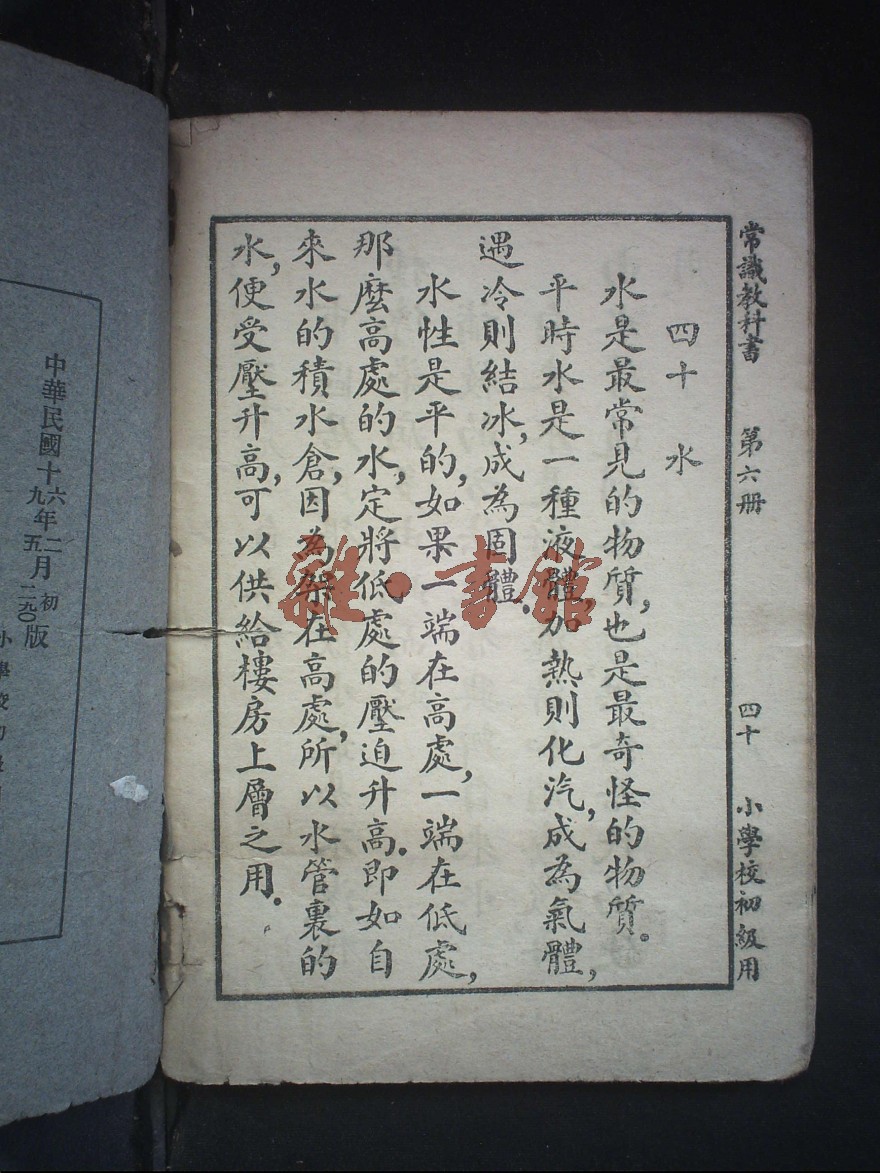 常識教科書 第六册 四十 小學校初級用
四十 水
水是最常見的物質,也是最奇怪的物質。
平時水是一種液體,加熱則化汽,成為氣體,
遇冷則結冰,成為固體。
水性是平的,如果一端在高處,一端在低處,
那麼高處的水,定將低處的壓迫升高。即如自
來水的積水倉,因為架在高處,所以水管裏的
水,便受壓升高,可以供給樓房上層之用。
雜·書館
中華民國十六年二月初版
九年五月二九〇版